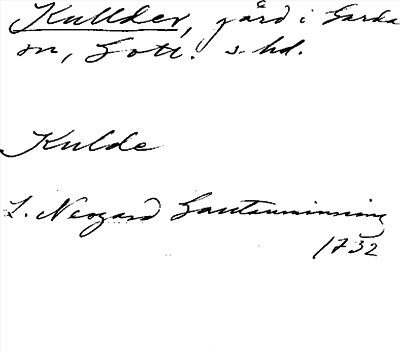 Kullder, gård i Garda
sn, Gotl. s. hd.
Kulde
L. Neogard Gautauminning
1732